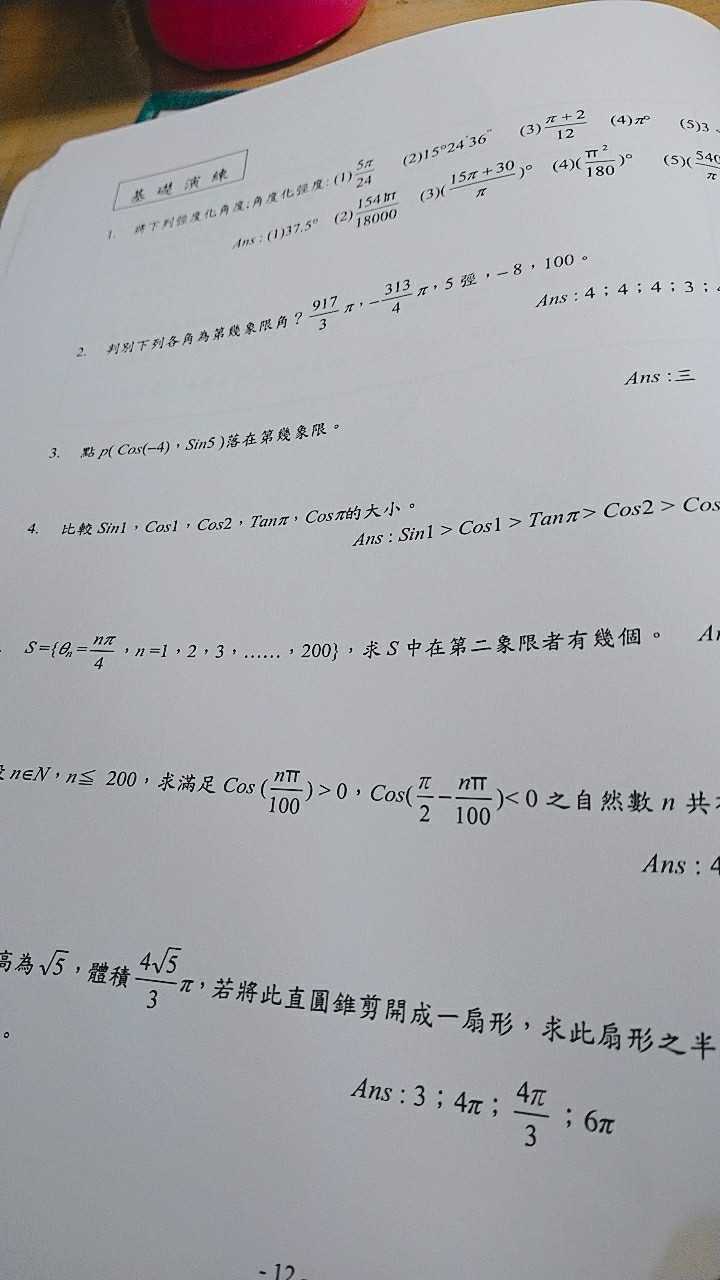 基礎演練
1. 將下列弳度化角度;角度化弳度:(1)5π/24 (2)15°24'36" (3)(π+2)/12 (4)π° (5)3
Ans:(1)37.5° (2)1541π/18000 (3)((15π+30)/π)° (4)(π²/180)° (5)(540/π
2. 判別下列各角為第幾象限角?917/3 π,-313/4 π,5 弳,-8,100。
Ans:4;4;4;3;
Ans:三
3. 點 p(Cos(-4),Sin5)落在第幾象限。
4. 比較 Sin1,Cos1,Cos2,Tanπ,Cosπ的大小。
Ans:Sin1 > Cos1 > Tanπ > Cos2 > Cos
S={θₙ=nπ/4,n=1,2,3,……,200},求 S 中在第二象限者有幾個。
n∈N,n≦ 200,求滿足 Cos(nπ/100)>0,Cos(π/2-nπ/100)<0 之自然數 n 共
Ans:4
高為√5,體積 4√5/3 π,若將此直圓錐剪開成一扇形,求此扇形之半
。
Ans:3;4π;4π/3;6π
-12-